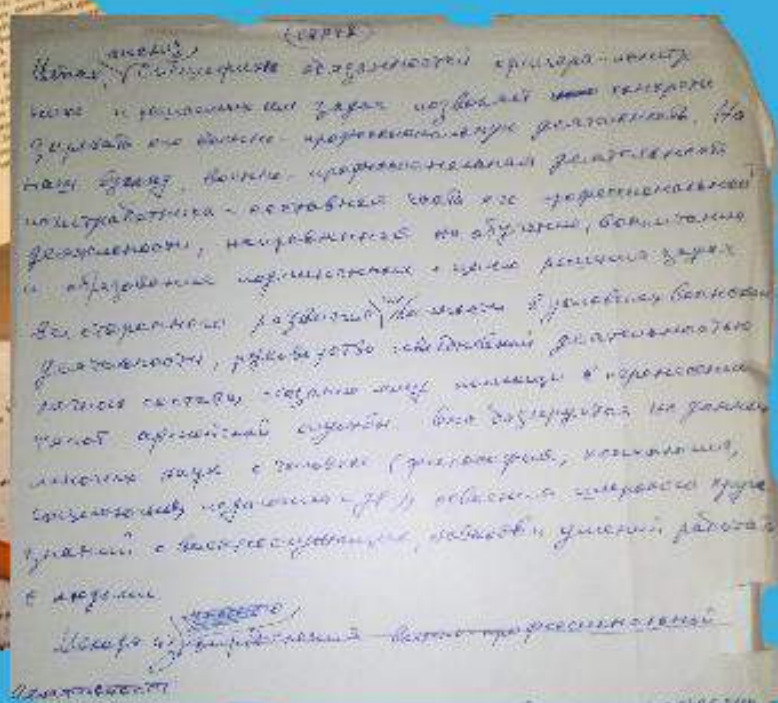 анализ
Итак, специфика обязанностей офицера-
и решаемых им задач позволяет конкрети
зировать его военно-профессиональную деятельность. На
наш взгляд, военно-профессиональная деятельность
политработника - составная часть его профессиональной
деятельности, направленная на обучение, воспитание
и образование подчиненных с целью решения задач
всестороннего развития личности в условиях воинской
деятельности, руководство деятельностью
личного состава, оказание ему помощи в перенесении
тягот армейской службы. Она базируется на данных
многих наук о человеке (философия, психология,
социология, педагогика и др.), освоении широкого круга
знаний о военнослужащих, навыков и умений работать
с людьми.
Исходя из военно-профессиональной
деятельности